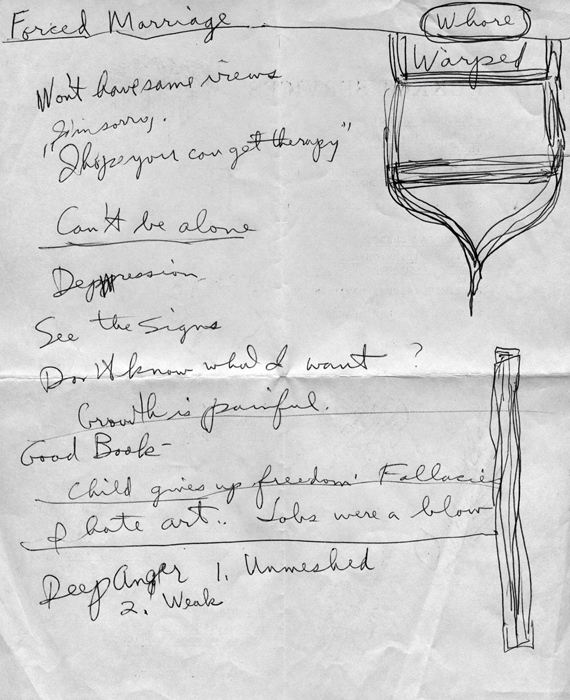 Forced Marriage
Whore
Warped
Won't have same views
I'm sorry.
"I hope you can get therapy"
Can't be alone
Deppression
See the Signs
Don't know what I want ?
Growth is painful.
Good Book-
Child gives up freedom. Fallacies
I hate art.. Jobs were a blow
Deep Anger 1. Unmeshed
2. Weak